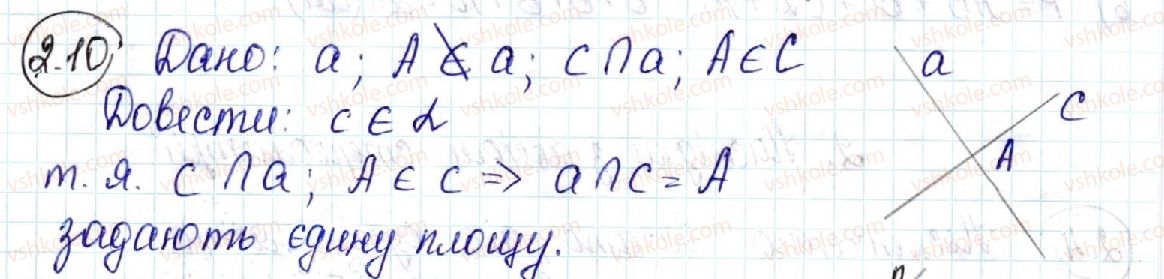 2.10 Дано: a; A ∉ a; c∩a; A∈C
Довести: c∈α
т. я. c∩a; A∈c => a∩c=A
задають єдину площу.
a
c
A